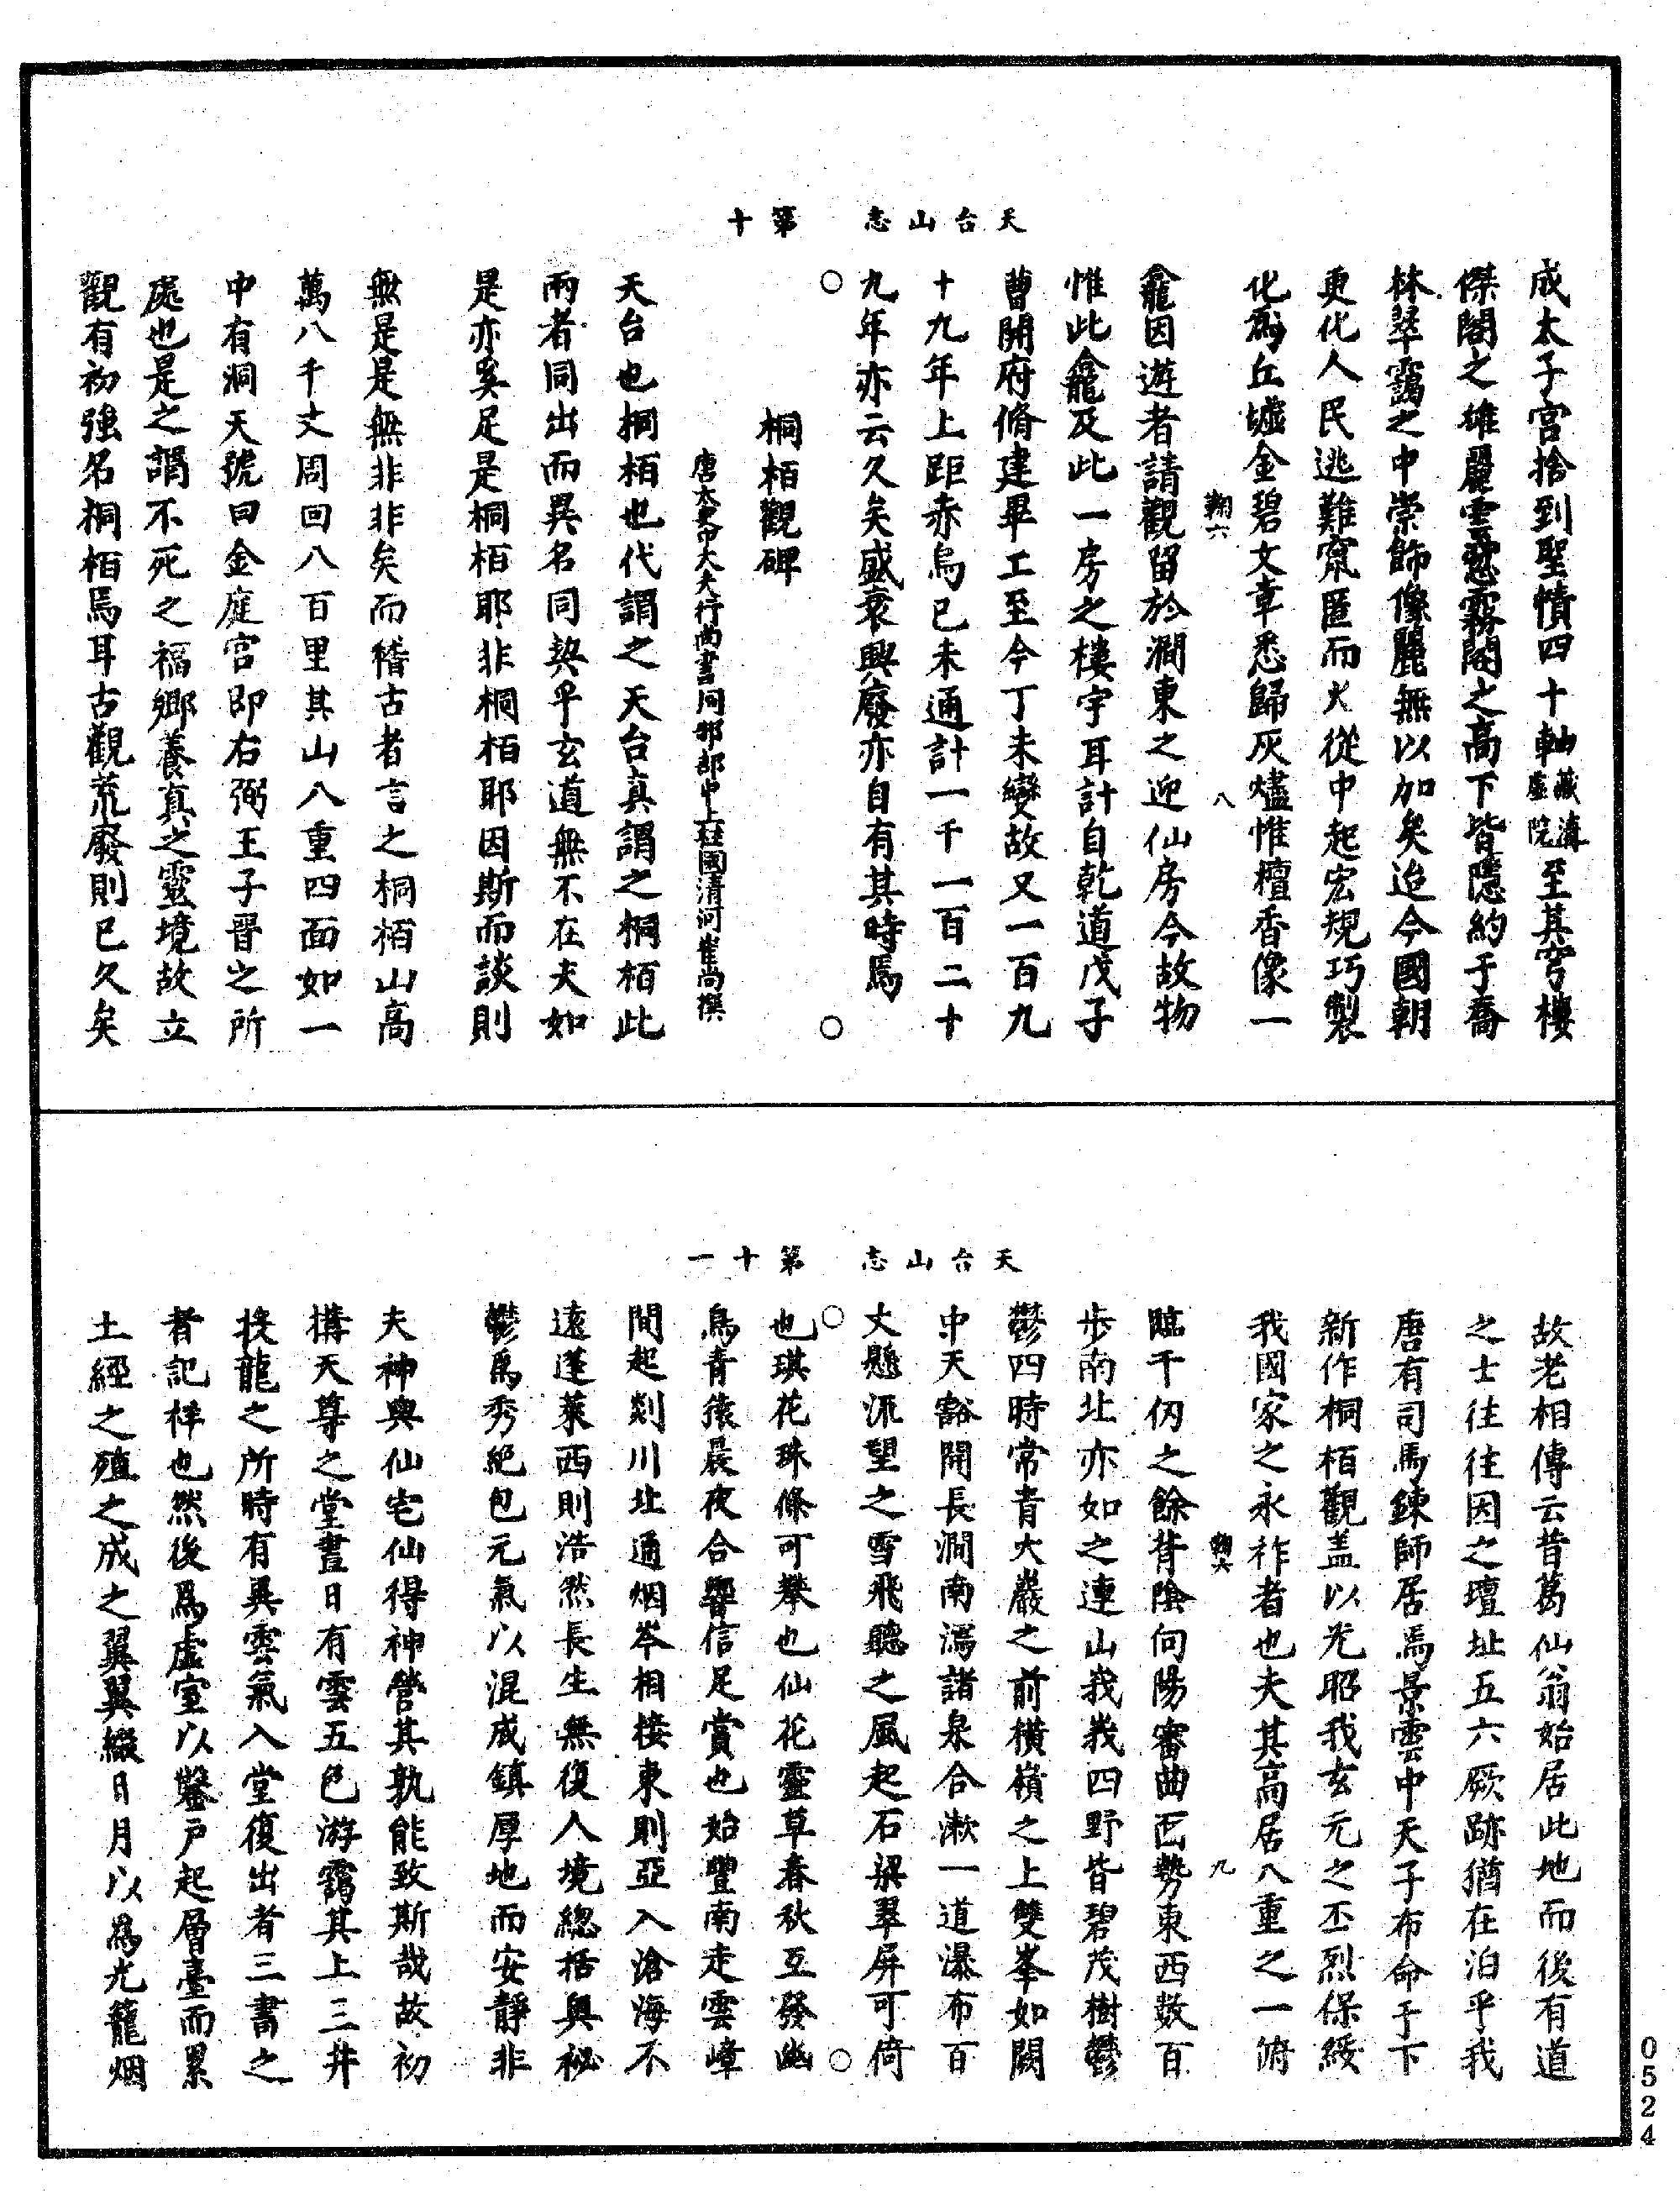 天台山志　第十
成太子宮捨到聖憤四十軸藏濟虛院至其穹樓
傑閣之雄麗雲窻霧閣之高下皆隱約于喬
林翠靄之中崇飾像麗無以加矣迨今國朝
更化人民逃難竄匿而火從中起宏規巧製
化爲丘墟金碧文章悉歸灰燼惟檀香像一
鞠六　八
龕因遊者請觀留於澗東之迎仙房今故物
惟此龕及此一房之樓宇耳計自乾道戊子
曹開府脩建畢工至今丁未變故又一百九
十九年上距赤烏已未通計一千一百二十
九年亦云久矣盛衰興廢亦自有其時焉
桐栢觀碑
唐太史中大夫行尚書祠部郎中上柱國清河崔尚撰
天台也桐栢也代謂之天台真謂之桐栢此
兩者同出而異名同契乎玄道無不在夫如
是亦奚足是桐栢耶非桐栢耶因斯而談則
無是是無非非矣而稽古者言之桐栢山高
萬八千丈周回八百里其山八重四面如一
中有洞天號曰金庭宮即右弼王子晉之所
處也是之謂不死之福鄉養真之靈境故立
觀有初強名桐栢焉耳古觀荒廢則已久矣
天台山志　第十一
故老相傳云昔葛仙翁始居此地而後有道
之士往往因之壇址五六厥跡猶在泊乎我
唐有司馬鍊師居焉景雲中天子布命于下
新作桐栢觀盖以光昭我玄元之丕烈保綏
我國家之永祚者也夫其高居八重之一俯
鞠六　九
臨千仞之餘背陰向陽審曲面勢東西数百
步南北亦如之連山峩峩四野皆碧茂樹鬱
鬱四時常青大巖之前橫嶺之上雙峯如闕
中天豁開長澗南瀉諸泉合漱一道瀑布百
丈懸流望之雪飛聽之風起石梁翠屏可倚
也琪花珠條可攀也仙花靈草春秋互發幽
鳥青猿晨夜合響信足賞也始豐南走雲嶂
間起剡川北通烟岑相接東則亞入滄海不
遠蓬萊西則浩然長生無復人境總括奧祕
鬱爲秀絕包元氣以混成鎮厚地而安靜非
夫神與仙宅仙得神營其孰能致斯哉故初
搆天尊之堂晝日有雲五色游靄其上三井
投龍之所時有異雲氣入堂復出者三書之
者記梓也然後爲虛室以鑿戶起層臺而累
土經之殖之成之翼翼綴日月以爲光籠烟
0524